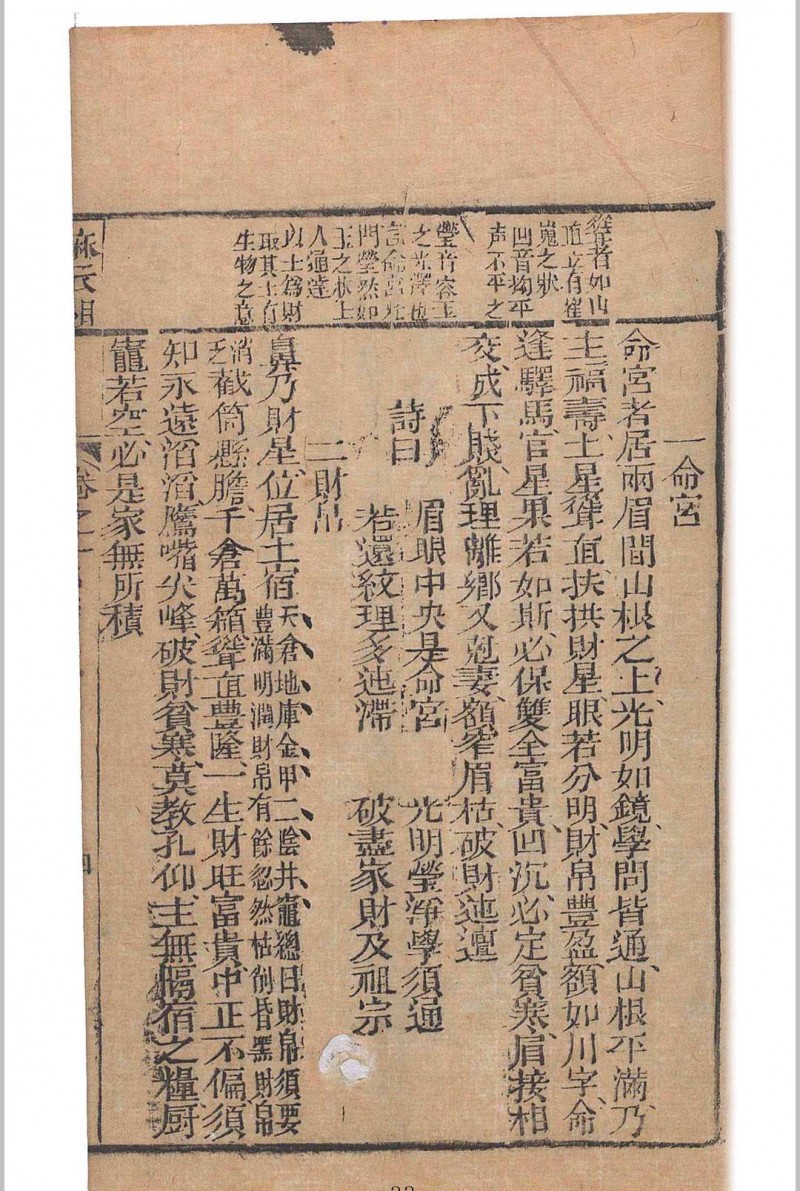 聳者如山
直立有崔
嵬之狀
凹音拗平
声不平之
瑩音容玉
之光澤也
言命宮光
問瑩然如
玉之枝上
人通達
以土爲財
取其土有
生物之意
一命宮
命宮者居兩眉間山根之上光明如鏡學問皆通山根平滿乃
主福壽土星聳直扶拱財星眼若分明財帛豐盈額如川字命
逢驛馬官星果若如斯必保雙全富貴凹沉必定貧寒眉接相
交成下賤亂理離鄉又尅妻額窄眉枯破財迍邅
詩曰 眉眼中央是命宮 光明瑩淨學須通
若還紋理多迍滯 破盡家財及祖宗
二財帛
鼻乃財星位居土宿天倉地庫金甲二陰井竈總曰財帛須要
豐滿明潤財帛有餘忽然枯削昏黑財帛
消乏截筒懸膽千倉萬箱聳直豐隆一生財旺富貴中正不偏須
知永遠滔滔鷹嘴尖峰破財貧寒莫教孔仰主無隔宿之糧厨
竈若空必是家無所積
麻衣相
卷之一
四